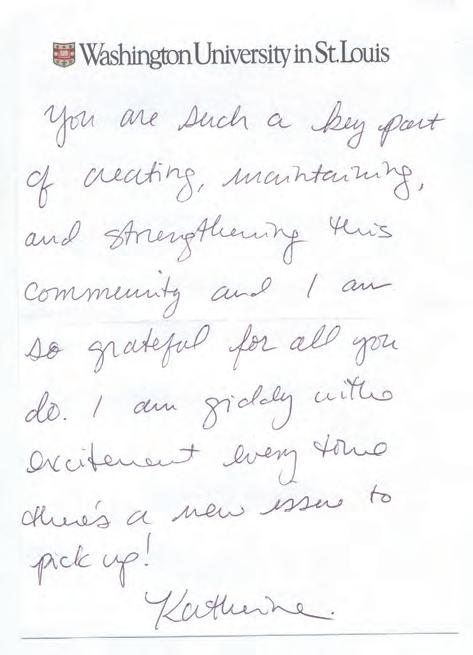 Washington University in St. Louis
You are such a key part
of creating, maintaining,
and strengthening this
community and I am
so grateful for all you
do. I am giddy with
excitement every time
there's a new issue to
pick up!
Katherine.